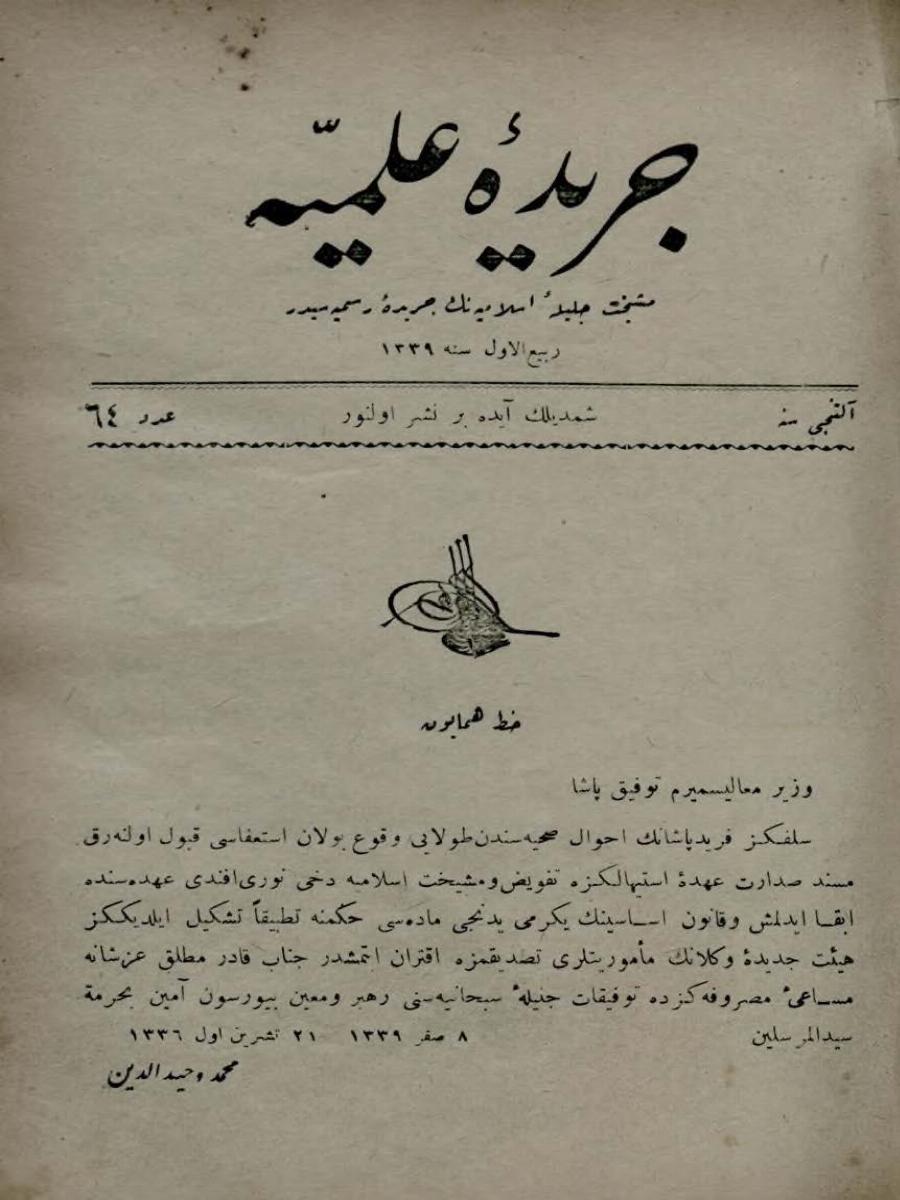 جريدهٔ علميّه
مشيخت جليلهٔ اسلاميه نك جريدهٔ رسميه سيدر
ربيع الاول سنه ١٣٣٩
آلتنجى سنه
شمديلك آيده بر نشر اولنور
عدد ٦٤
خط همايون
وزير معاليسميرم توفيق پاشا
سلفكز فريدپاشانك احوال صحيه‌سندن طولايى وقوع بولان استعفاسى قبول اوله‌رق
مسند صدارت عهدهٔ استيهالكزه تفويض ومشيخت اسلاميه دخى نورى افندى عهده‌سنده
ابقا ايدلمش وقانون اساسينك يكرمى يدنجى ماده‌سى حكمنه تطبيقاً تشكيل ايلديككز
هيئت جديدهٔ وكلانك مأموريتلرى تصديقمزه اقتران اتمشدر جناب قادر مطلق عزشانه
مساعىٔ مصروفه‌كزده توفيقات جليلهٔ سبحانيه‌سنى رهبر ومعين بيورسون آمين بحرمة
سيدالمرسلين ٨ صفر ١٣٣٩ ٢١ تشرين اول ١٣٣٦
محمد وحيدالدين